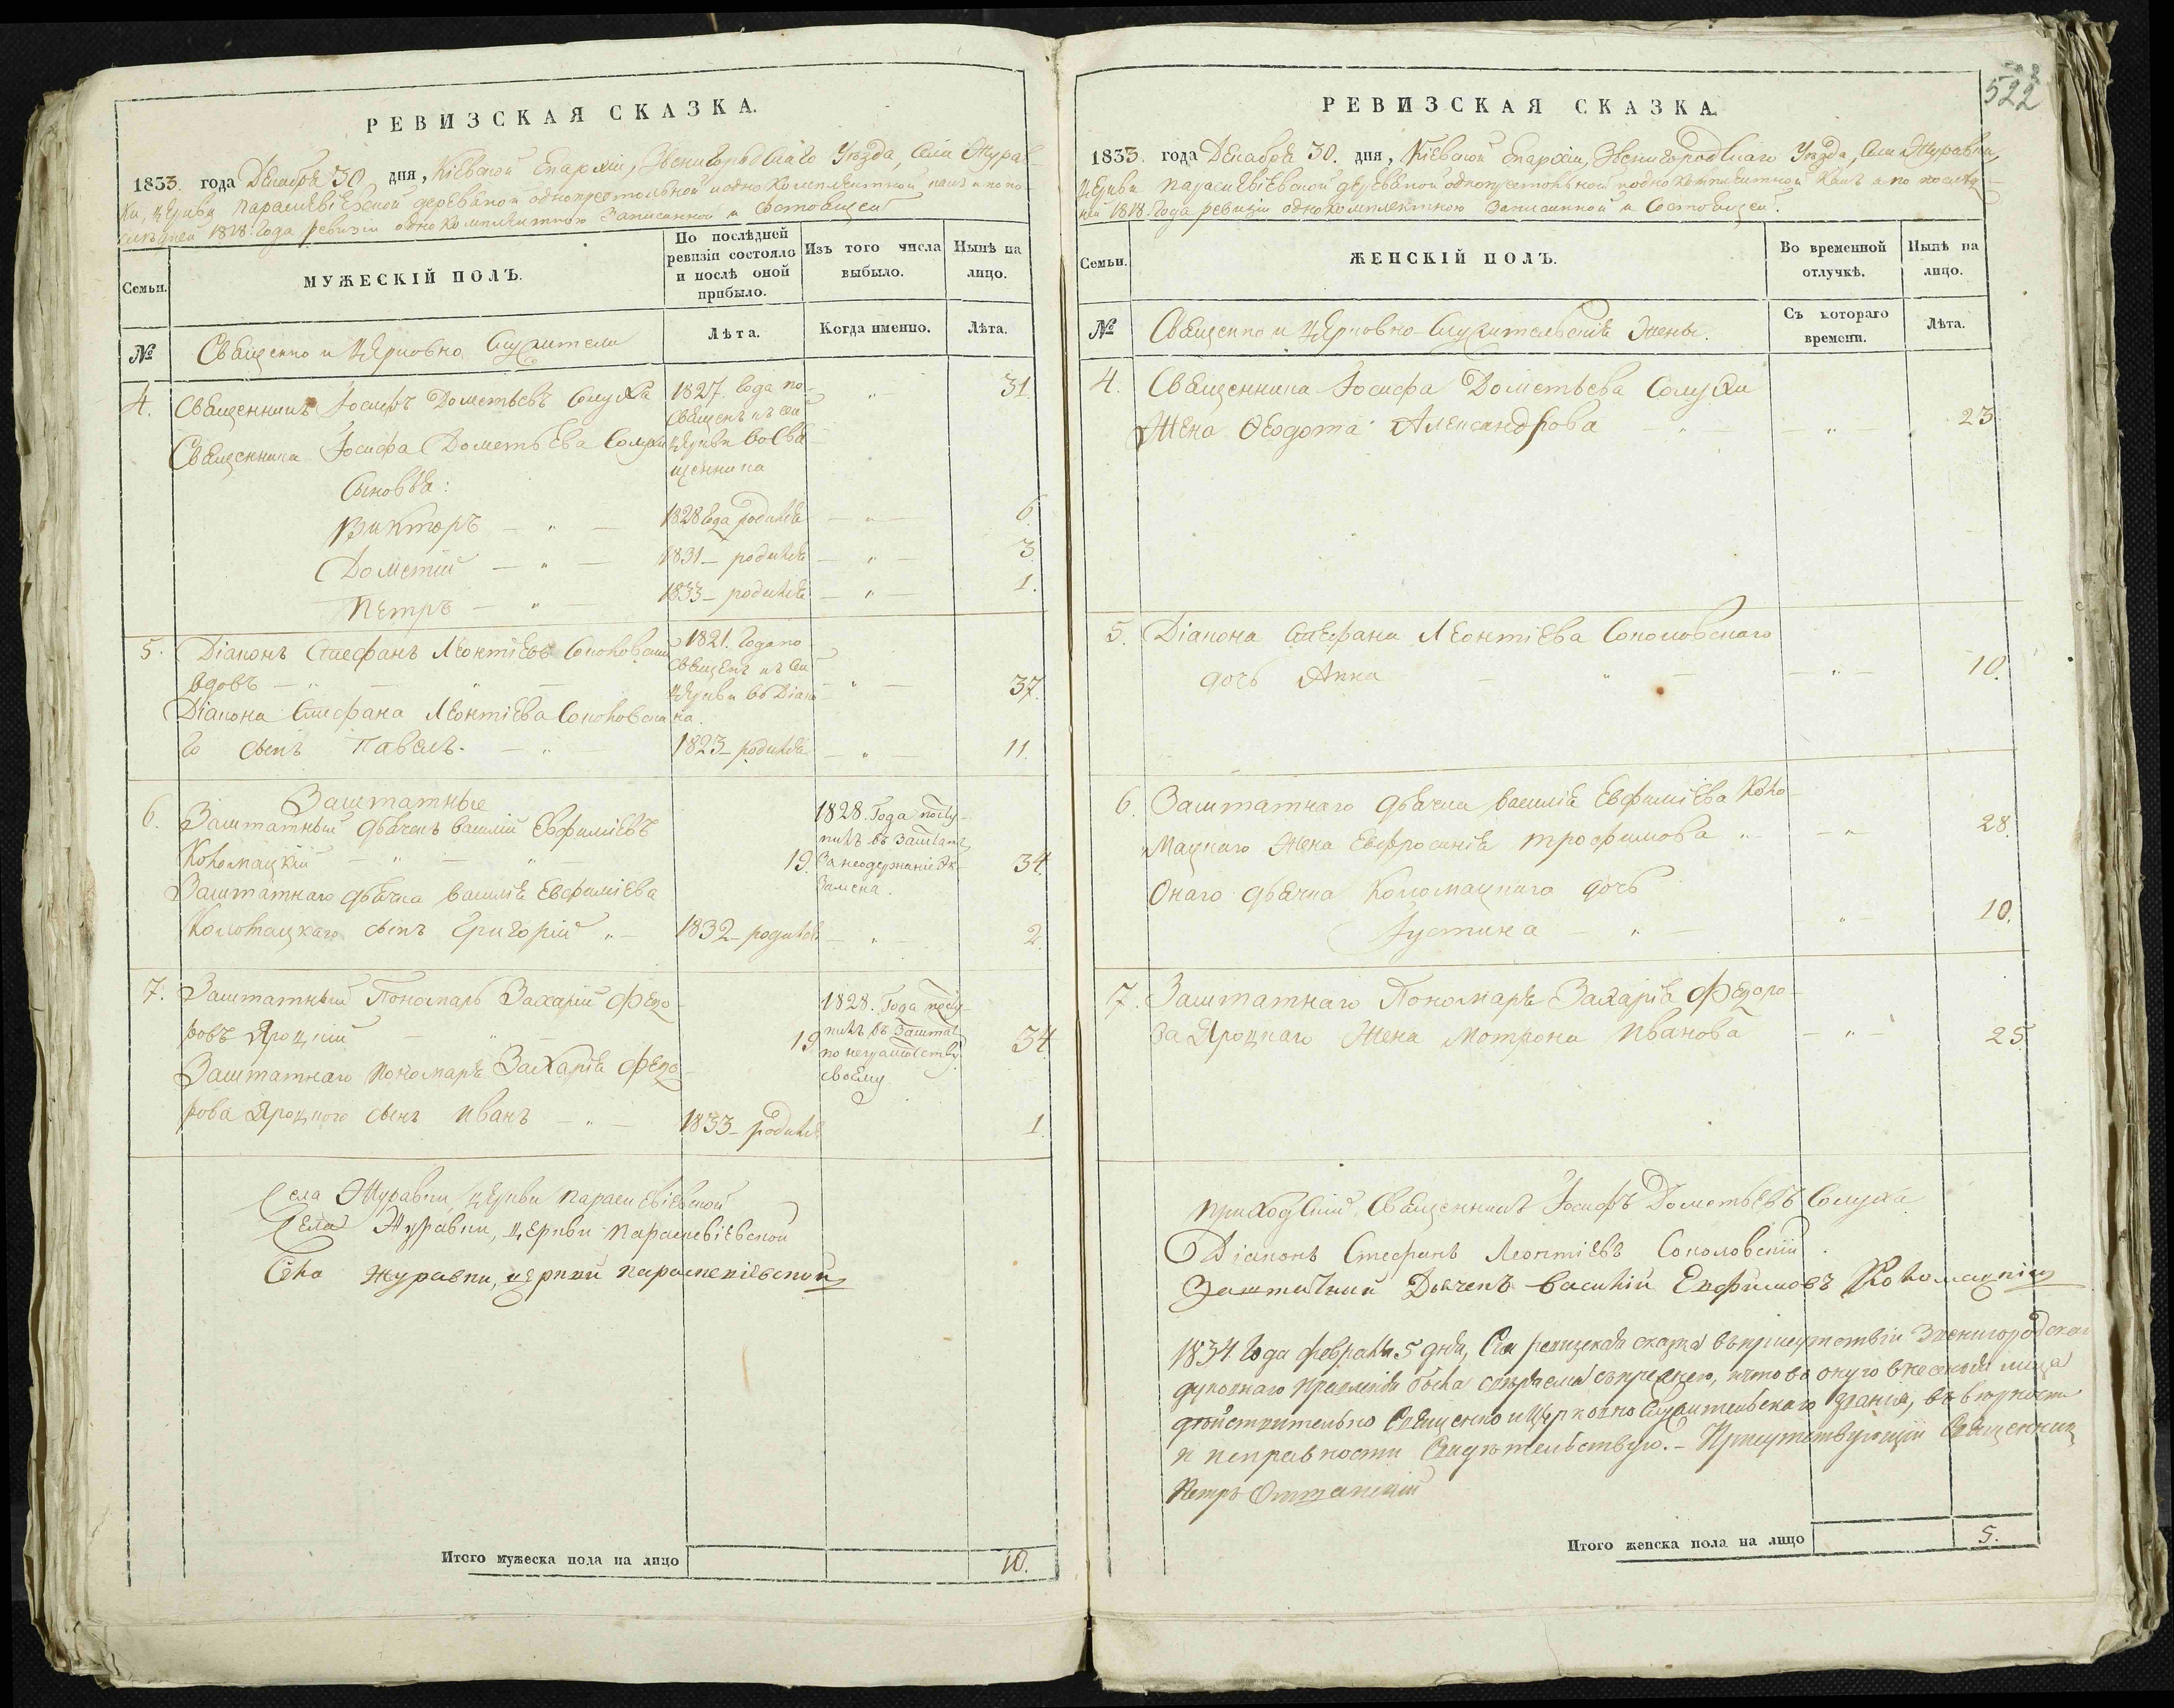 РЕВИЗСКАЯ СКАЗКА.
1833. года Декабря 30. дня, Кіевской Епархіи, Звенигородскаго Уѣзда, Села Журав-
ки, церкви Параскевіевской деревяной однопрестольной и однокомплектной какъ и по по-
слѣдней 1818. Года ревизіи однокомплектною Записанной и Состоящей
Семьи.
МУЖЕСКІЙ ПОЛЪ.
По послѣдней
ревизіи состояло
и послѣ оной
прибыло.
Изъ того числа
выбыло.
Нынѣ на
лицо.
№
Священно и Церковно Служители
Лѣта.
Когда именно.
Лѣта.
4. Священникъ Іосифъ Дометьевъ Солуха 1827. Года по- „ 31.
священъ къ сей
Священника Іосифа Дометьева Солухи церкви во Свя-
щенника
Сыновья:
Викторъ — „ — 1828 Года родился — „ — 6.
Дометій — „ — 1831 — родился — „ — 3
Петръ — „ — 1833 — родился — „ — 1.
5. Діаконъ Стефанъ Леонтіевъ Соколовскій 1821. Года по
священъ къ сей
вдовъ — „ — „ — церкви въ Діако- — „ — 37.
Діакона Стефана Леонтіева Соколовска на.
го сынъ Павелъ. — „ — 1823 — родился — „ — 11.
Заштатные
6. Заштатный дьячекъ Василій Евфиміевъ 1828. Года посту-
пилъ въ Заштатъ
Коломацкій — „ — „ — 19. За неодержаніе Эк- 34.
Замена.
Заштатнаго дьячка Василія Евфиміева
Коломацкаго сынъ Григорій „ — 1832 — родился — „ — 2.
7. Заштатный Пономарь Захарій Федо- 1828. Года посту-
ровъ Яроцкій — „ — 19. пилъ въ Заштатъ 34
по неграмотству
Заштатнаго Пономаря Захарія Федо- своему
рова Яроцкого сынъ Иванъ — „ — 1833 — родился 1.
Села Журавки, церкви Параскевіевской
Села Журавки, церкви Параскевіевской
Села Журавки, церкви Параскевіевской
Итого мужеска пола на лицо 10.
522
РЕВИЗСКАЯ СКАЗКА.
1833. года Декабря 30. дня, Кіевской Епархіи, Звенигородскаго Уѣзда, Села Журавки,
Церкви Параскевіевской деревяной однопрестольной и однокомплектной какъ и по послѣд-
ней 1818. Года ревизіи однокомплектною Записанной и Состоящей.
Семьи.
ЖЕНСКІЙ ПОЛЪ.
Во временной
отлучкѣ.
Нынѣ на
лицо.
№
Священно и Церковно-Служительскіе Жены.
Съ котораго
времени.
Лѣта.
4. Священника Іосифа Дометьева Солухи
Жена Ѳеодота Александрова — „ — — „ — 23
5. Діакона Стефана Леонтіева Соколовскаго
дочь Анна — „ — — „ — 10.
6. Заштатнаго дьячка Василія Евфиміева Коло-
мацкаго Жена Евфросинія Трофимова „ — — „ 28.
Онаго дьячка Коломацкаго дочь
Іустина — „ — „ — 10.
7. Заштатнаго Пономаря Захарія Федоро-
ва Яроцкаго Жена Мотрона Иванова — „ — 25
Приходскій Священникъ Іосифъ Дометьевъ Солуха
Діаконъ Стефанъ Леонтіевъ Соколовскій.
Заштатный Дьячекъ Василій Евфимовъ Коломацкій
1834 Года февраля 5 дня, Сія ревизская сказка въ присутствіи Звенигородскаго
духовнаго Правленія была свѣряема съ прежнею, и что въ оную внесенныя лица
дѣйствительно Священно и Церковно Служительскаго званія, въ вѣрности
и исправности Свидѣтельствую. — Присутствующій Священникъ
Петръ
Итого женска пола на лицо 5.